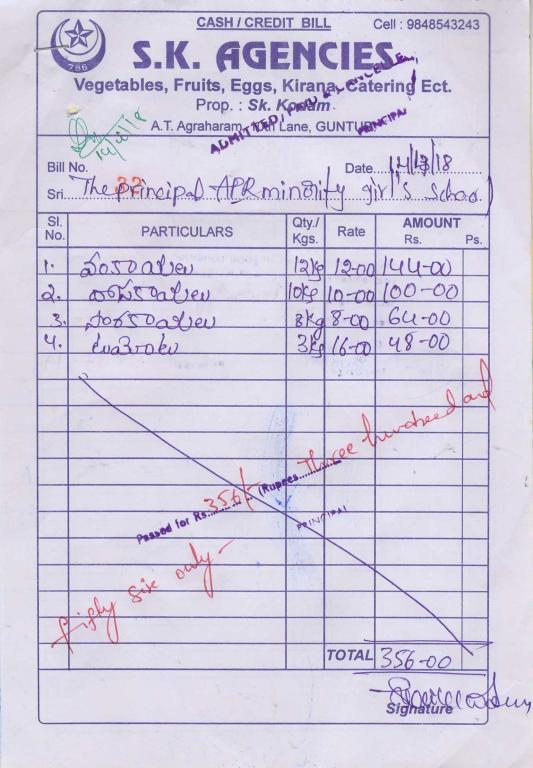 CASH / CREDIT BILL
Cell : 9848543243
786
S.K. AGENCIES
Vegetables, Fruits, Eggs, Kirana, Catering Ect.
Prop. : Sk. Konam
A.T. Agraharam, Lane, GUNTUR
ADMITTED, PAID & CANCELLED
PRINCIPAL
Bill No. 32
Date 14/12/18
Sri. The principal APR minority girl's School
Sl. No. PARTICULARS Qty./ Kgs. Rate AMOUNT Rs. Ps.
1. వంకాయలు 12kg 12-00 144-00
2. దోసకాయలు 10kg 10-00 100-00
3. సొరకాయలు 8kg 8-00 64-00
4. 3kg 16-00 48-00
Passed for Rs. 356/- (Rupees Three hundreed and
PRINCIPAL
fifty six only -
TOTAL 356-00
Signature